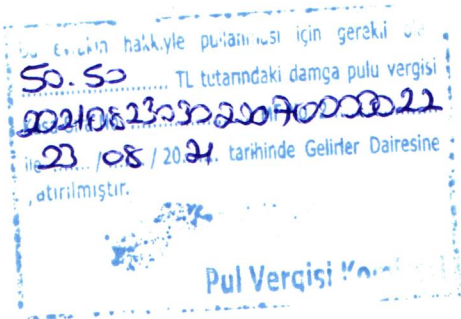 hakkıyle pullanması için gerekli
50.50 TL tutarındaki damga pulu vergisi
ile 23 / 08 / 2021. tarihinde Gelirler Dairesine
yatırılmıştır.
Pul Vergisi